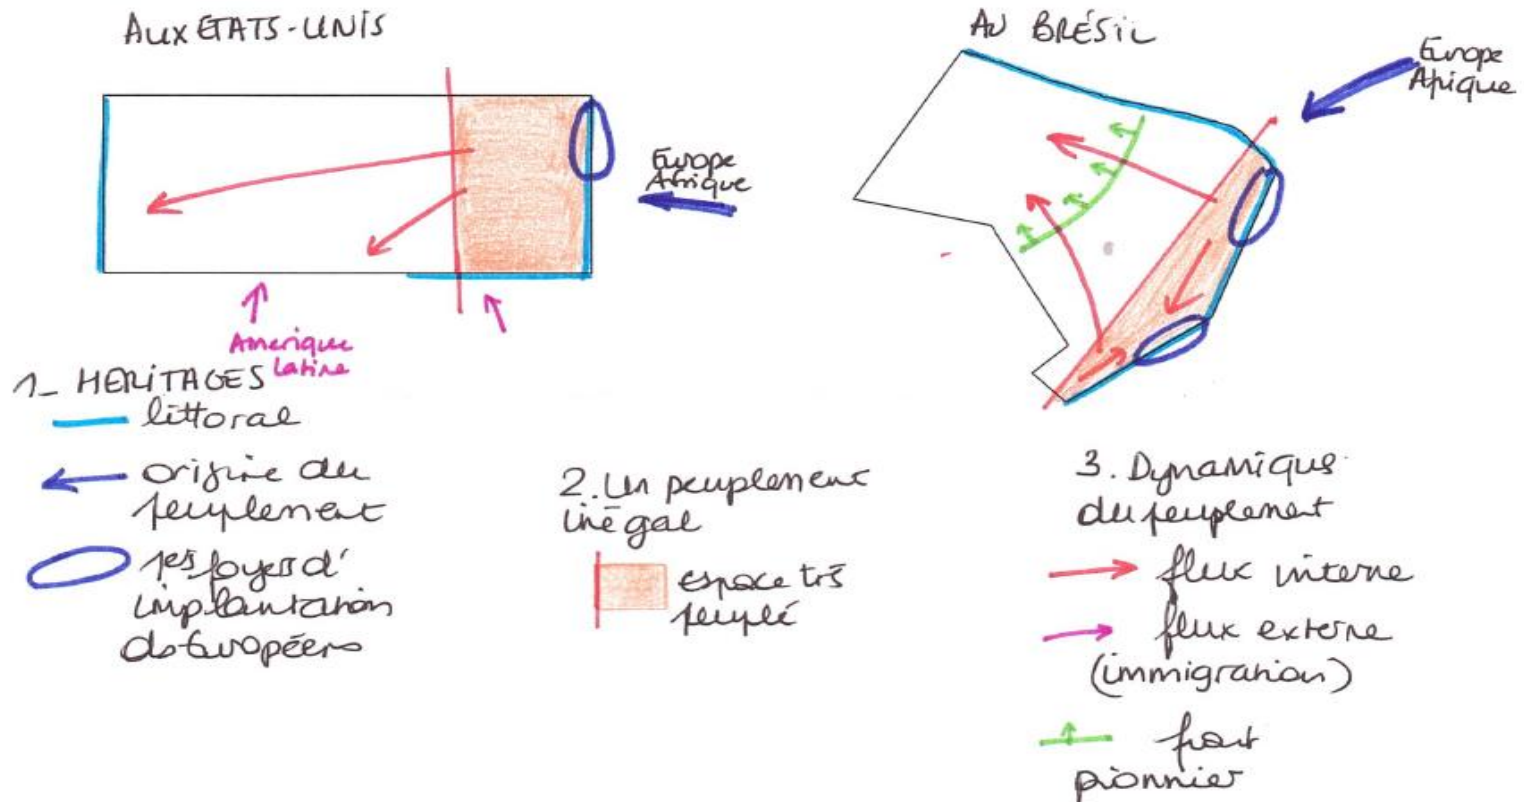 AUX ETATS-UNIS
Europe
Afrique
Amerique
latine
AU BRÉSIL
Europe
Afrique
1_ HERITAGES
littoral
origine du
peuplement
1ers foyers d'
implantation
des Européens
2. Un peuplement
inégal
espace très
peuplé
3. Dynamique
du peuplement
flux interne
flux externe
(immigration)
front
pionnier